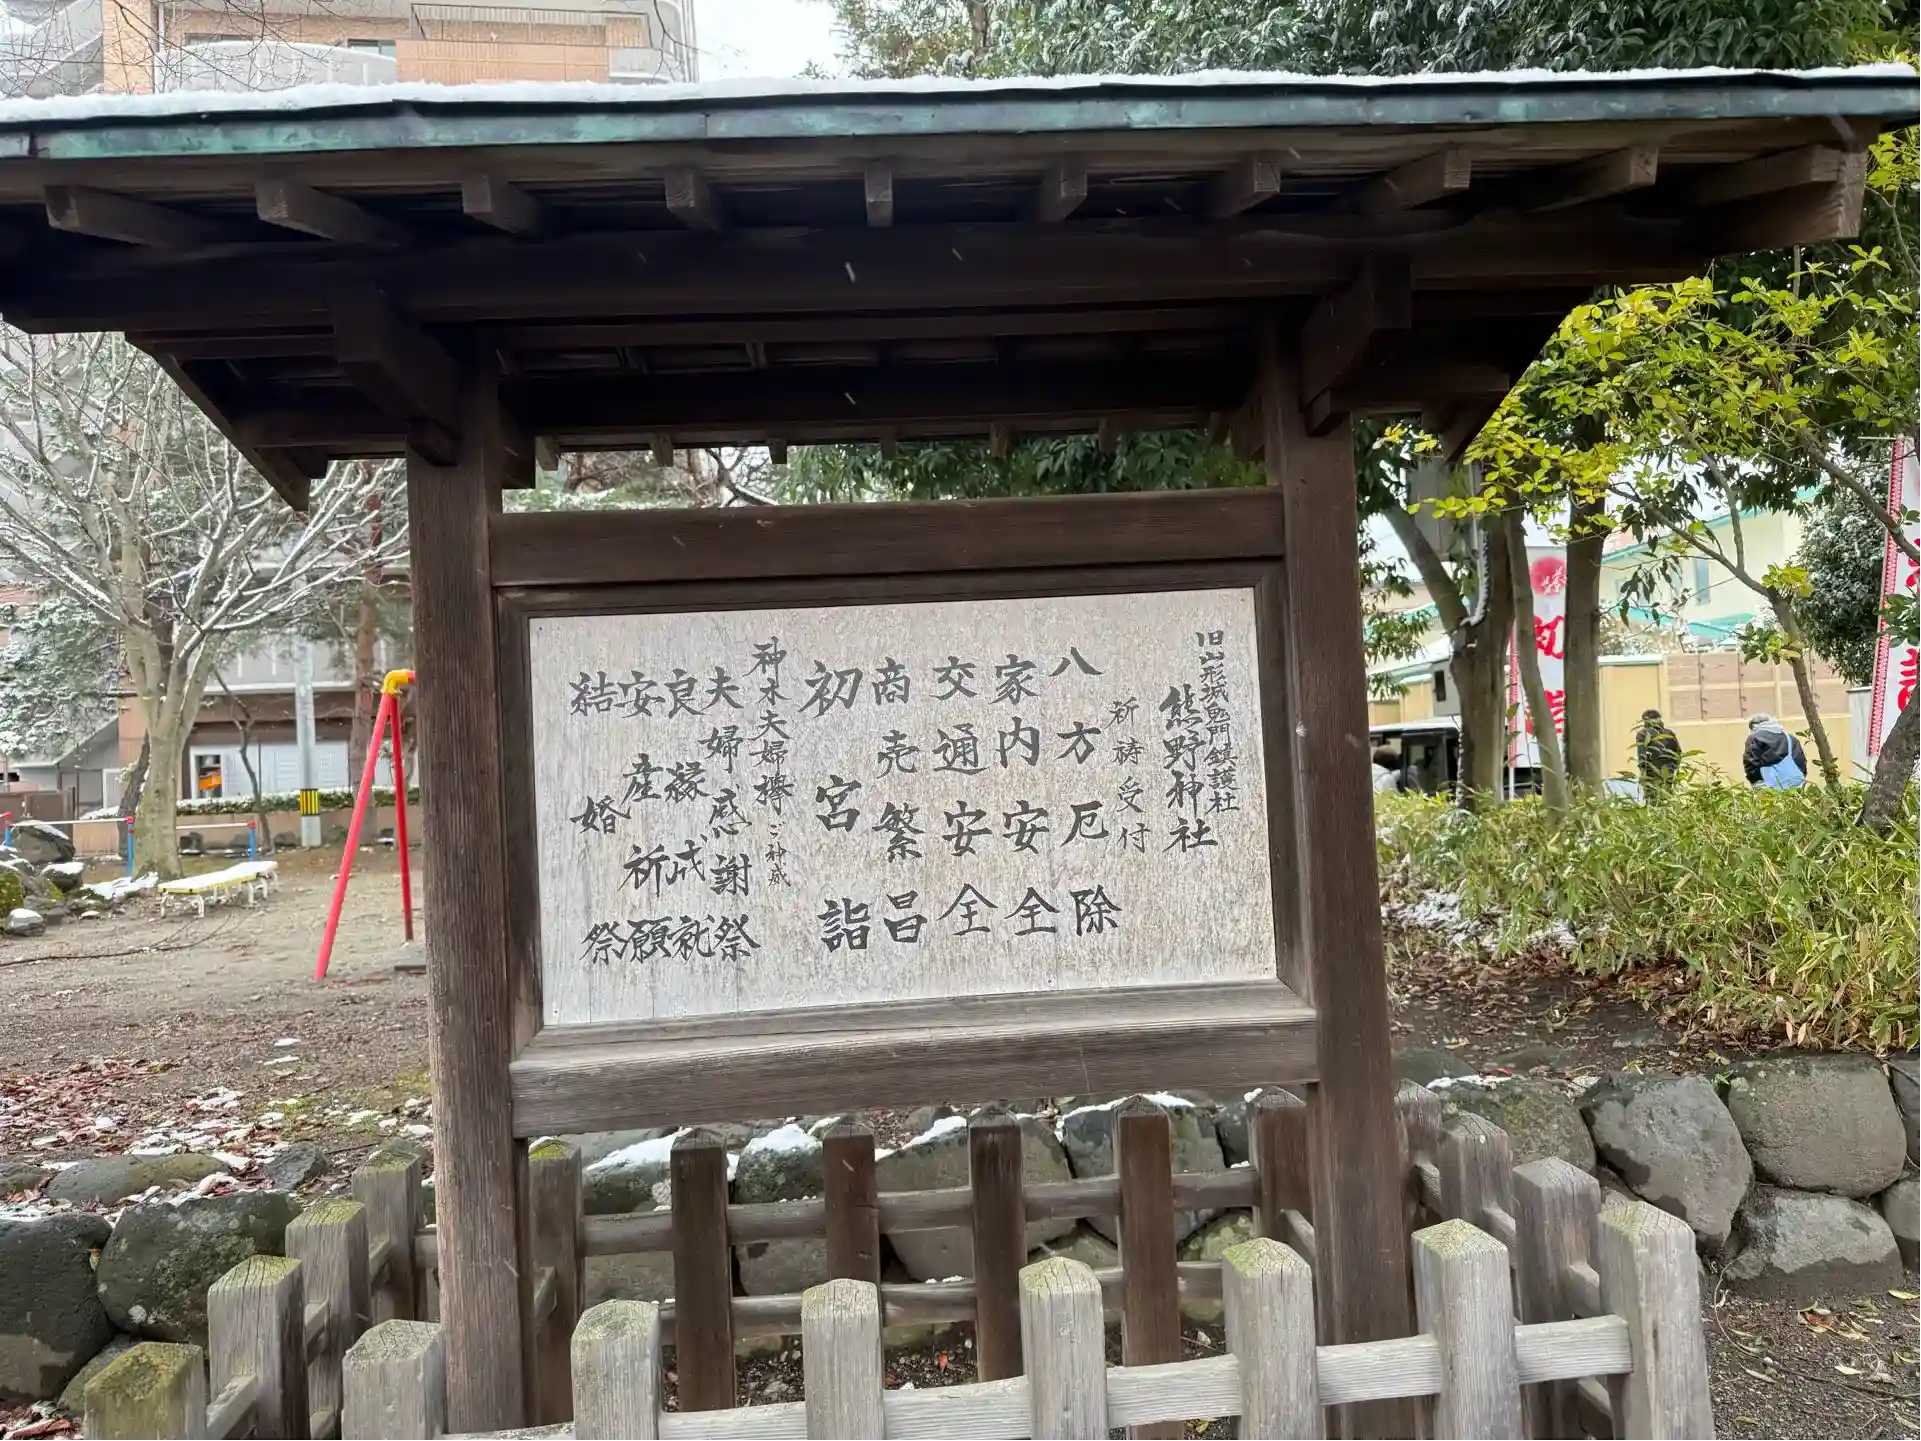 旧山形城鬼門鎮護社
熊野神社
祈祷受付
八方厄除
家内安全
交通安全
商売繁昌
初宮詣
神木夫婦欅ご神威
夫婦感謝祭
良縁成就
安産祈願
結婚祭